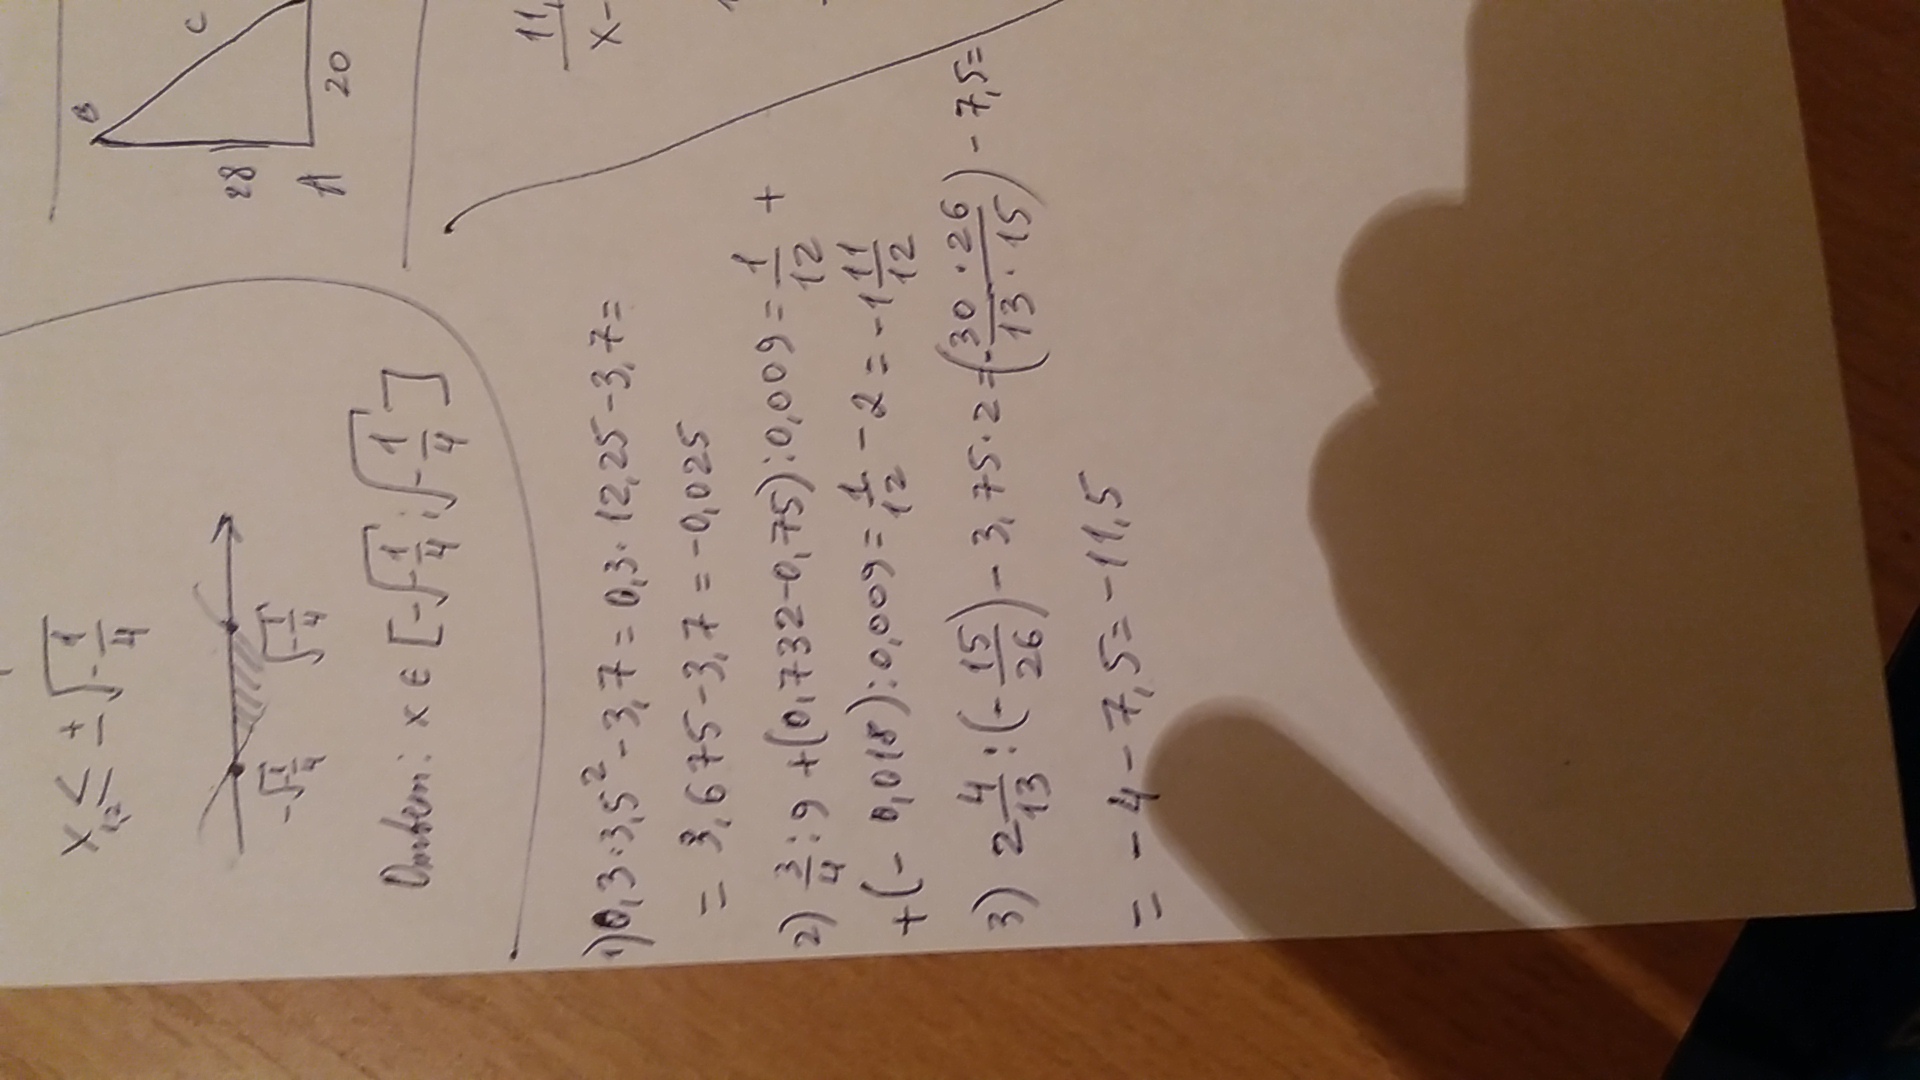 x₁,₂ ≤ ± √-1/4
-√-1/4 √-1/4
Ответ: x ∈ [-√-1/4; √-1/4]
B
C
28
A
20
11,
x-
1) 0,3·3,5² - 3,7 = 0,3 · 12,25 - 3,7 =
= 3,675 - 3,7 = -0,025
2) 3/4 : 9 + (0,732 - 0,75) : 0,009 = 1/12 +
+ (- 0,018) : 0,009 = 1/12 - 2 = -1 11/12
3) 2 4/13 : (- 15/26) - 3,75 · 2 = (- 30 · 26/13 · 15) - 7,5 =
= - 4 - 7,5 = - 11,5